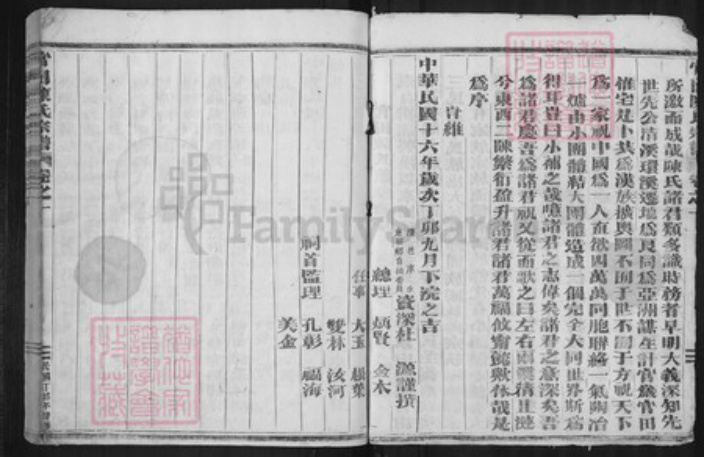 所激而成哉陳氏諸君類多識時務者早明大義深知先
世先公清溪環溪遷地為良同為亞洲謀生計官儀官田
惟宅是卜其為漢族擴輿圖不囿于世不囿于方視天下
為一家視中國為一人直欲四萬萬同胞聯絡一氣陶冶
一爐由小團體粘大團體造成一個完全大同世界斯為
得耳豈曰小補之哉噫諸君之志偉矣諸君之意深矣吾
為諸君慶吾為諸君祝又從而歌之曰左右兩
兮東西二陳繁衍盈升諸君諸君萬福攸齊懿歟休哉是
為序
旹維
中華民國十六年歲次丁卯九月下浣之吉
資深杜 源謹撰
總理 煩賢 金木
任事 大玉 根葉
雙林 汝河
祠首監理 孔彰 福海
美金
官田陳氏宗譜 卷之一
FamilySearch